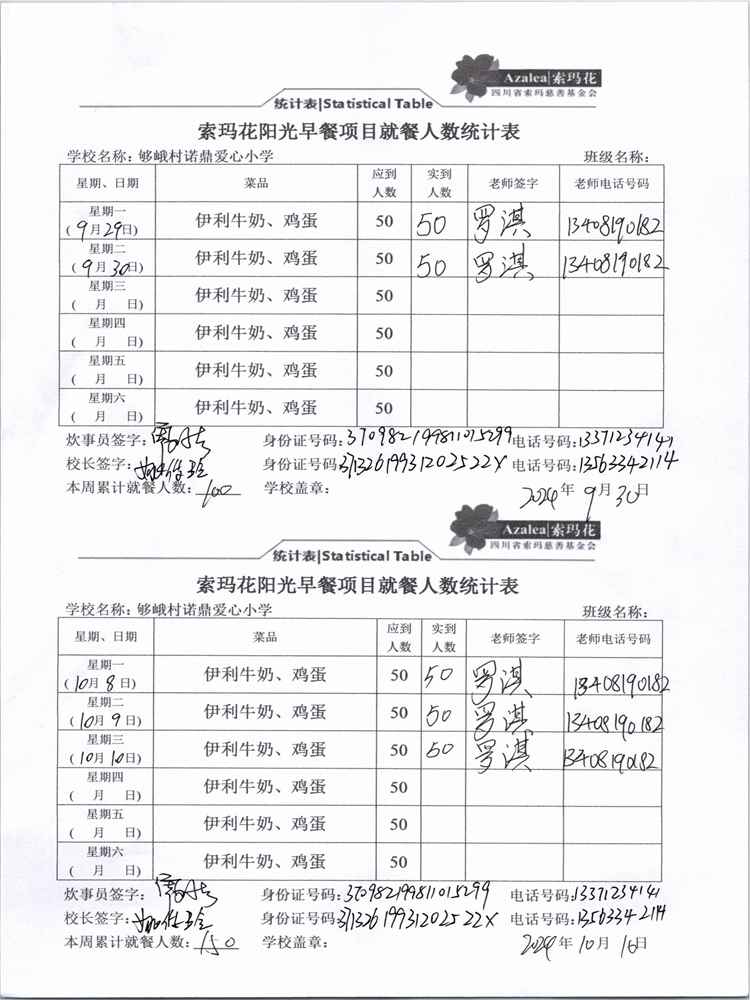 Azalea|索玛花
四川省索玛慈善基金会
统计表|Statistical Table
索玛花阳光早餐项目就餐人数统计表
学校名称：够峨村诺鼎爱心小学 班级名称：
星期、日期 菜品 应到人数 实到人数 老师签字 老师电话号码
星期一 (9月29日) 伊利牛奶、鸡蛋 50 50 罗淇 13408190182
星期二 (9月30日) 伊利牛奶、鸡蛋 50 50 罗淇 13408190182
星期三 ( 月 日) 伊利牛奶、鸡蛋 50
星期四 ( 月 日) 伊利牛奶、鸡蛋 50
星期五 ( 月 日) 伊利牛奶、鸡蛋 50
星期六 ( 月 日) 伊利牛奶、鸡蛋 50
炊事员签字： 身份证号码：370982199811015299 电话号码：13371234141
校长签字： 身份证号码：37132619931202522X 电话号码：13563342114
本周累计就餐人数：100 学校盖章： 2024年9月30日
Azalea|索玛花
四川省索玛慈善基金会
统计表|Statistical Table
索玛花阳光早餐项目就餐人数统计表
学校名称：够峨村诺鼎爱心小学 班级名称：
星期、日期 菜品 应到人数 实到人数 老师签字 老师电话号码
星期一 (10月8日) 伊利牛奶、鸡蛋 50 50 罗淇 13408190182
星期二 (10月9日) 伊利牛奶、鸡蛋 50 50 罗淇 13408190182
星期三 (10月10日) 伊利牛奶、鸡蛋 50 50 罗淇 13408190182
星期四 ( 月 日) 伊利牛奶、鸡蛋 50
星期五 ( 月 日) 伊利牛奶、鸡蛋 50
星期六 ( 月 日) 伊利牛奶、鸡蛋 50
炊事员签字： 身份证号码：370982199811015299 电话号码：13371234141
校长签字： 身份证号码：37132619931202522X 电话号码：13563342114
本周累计就餐人数：150 学校盖章： 2024年10月10日